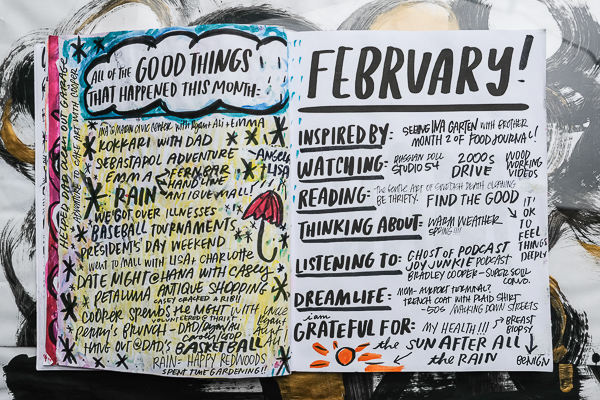 ALL OF THE GOOD THINGS
THAT HAPPENED THIS MONTH:
HELPED DAD CLEAN OUT GARAGE
ADVENTURE TO CAKE ART WITH COOPER
INA @ MARIN CIVIC CENTER WITH Bryant + Ali + EMMA
KOKKARI WITH DAD
SEBASTOPOL ADVENTURE
EMMA
FERN BAR
HAND LINE
ANTIQUE MALL!
ANGELA
LISA
RAIN
WE GOT OVER ILLNESSES
BASEBALL TOURNAMENTS
PRESIDENT'S DAY WEEKEND
WENT TO MALL WITH LISA + CHARLOTTE
DATE NIGHT @ HANA WITH CASEY
PETALUMA ANTIQUE SHOPPING
CASEY CRACKED A RIB!!
COOPER SPENDS THE NIGHT WITH UNCLE
BRUNCH - DAD
HANG OUT @ DAD'S
BASKETBALL
RAIN = HAPPY REDWOODS
SPENT TIME GARDENING!!
FEBRUARY!
INSPIRED BY: SEEING INA GARTEN WITH BROTHER
MONTH 2 OF FOOD JOURNAL!
WATCHING: RUSSIAN DOLL
STUDIO 54
2000s
DRIVE
WOOD
WORKING
VIDEOS
READING: THE GENTLE ART OF SWEDISH DEATH CLEANING
BE THRIFTY. FIND THE GOOD
THINKING ABOUT: WARM WEATHER
SPRING!!!
IT'S
OK
TO
FEEL
THINGS
DEEPLY
LISTENING TO: GHOST OF PODCAST
JOY JUNKIE PODCAST
BRADLEY COOPER - SUPER SOUL
CONVO.
DREAM LIFE: MOM - AIRPORT TERMINAL?
TRENCH COAT WITH PLAID SHIRT
- 50s / WALKING DOWN STREETS
i am
GRATEFUL FOR: MY HEALTH!!!
BREAST
BIOPSY
BENIGN
the SUN AFTER ALL
the RAIN